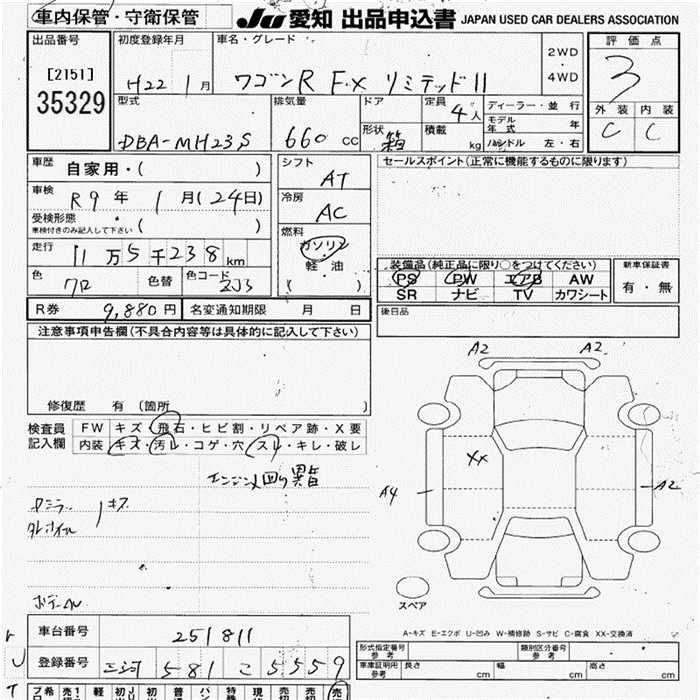 車内保管・守衛保管
JU 愛知 出品申込書 JAPAN USED CAR DEALERS ASSOCIATION
出品番号
[2151]
35329
初度登録年月
H22 1月
車名・グレード
ワゴンR FX リミテッドII
2WD
・
4WD
評価点
3
外装 内装
C C
型式
DBA-MH23S
排気量
660 cc
ドア
形状 箱
定員 4人
積載 kg
ディーラー・並行
モデル年式 年
ハンドル 左・右
車歴
自家用・( )
車検
R9年 1月(24日)
受検形態
車検付きのみ記入して下さい ( )
走行 11万5千238km
色 クロ 色替 色コード ZJ3
シフト
AT
冷房
AC
燃料
ガソリン
軽・油
( )
セールスポイント(正常に機能するものに限ります)
装備品(純正品に限り○をつけてください)
PS PW エアB AW
SR ナビ TV カワシート
新車保証書
有・無
R券 9,880円 名変通知期限 月 日
後日品
注意事項申告欄(不具合内容等は具体的に記入して下さい)
修復歴 有 (箇所 )
検査員記入欄
FW キズ・飛石・ヒビ割・リペア跡・X要
内装 キズ・汚レ・コゲ・穴・スレ・キレ・破レ
エンジン回り異音
キズ
A2 A2
XX
A4 A2
スペア
A-キズ E-エクボ U-凹み W-補修跡 S-サビ C-腐食 XX-交換済
車台番号 251811
登録番号 三河 581 こ 5559
形式指定番号 参考
類別区分番号 参考
車庫証明用 参考 長さ cm 幅 cm 高さ cm